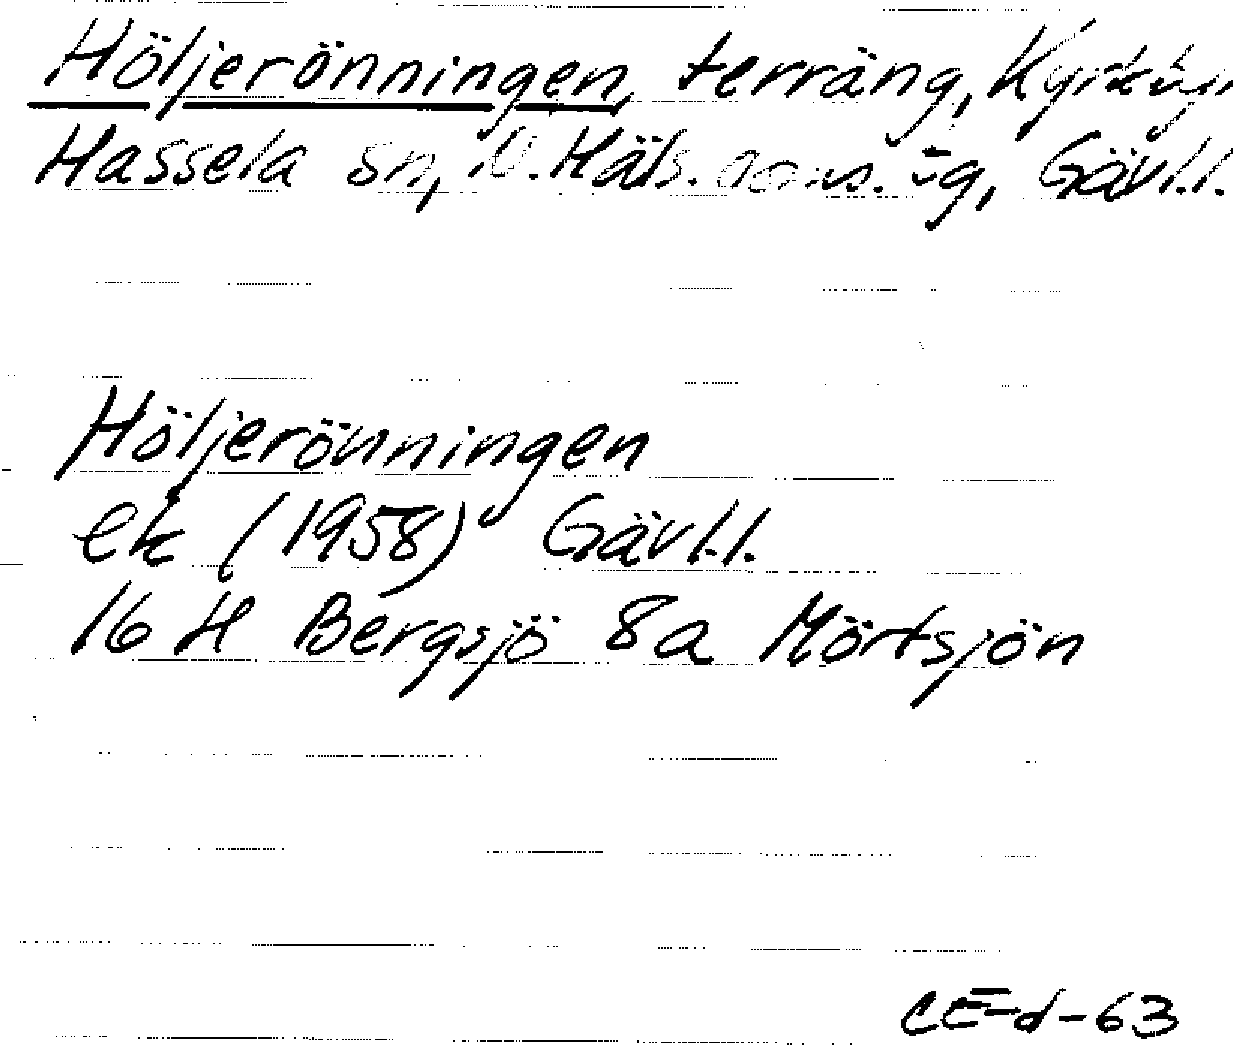 Höljerönningen, terräng, Kyrkbyn
Hassela sn, N. Häls. doms. Tg, Gävl.l.
Höljerönningen
ek (1958) Gävl.l.
16 H Bergsjö 8a Mörtsjön
CE-d-63